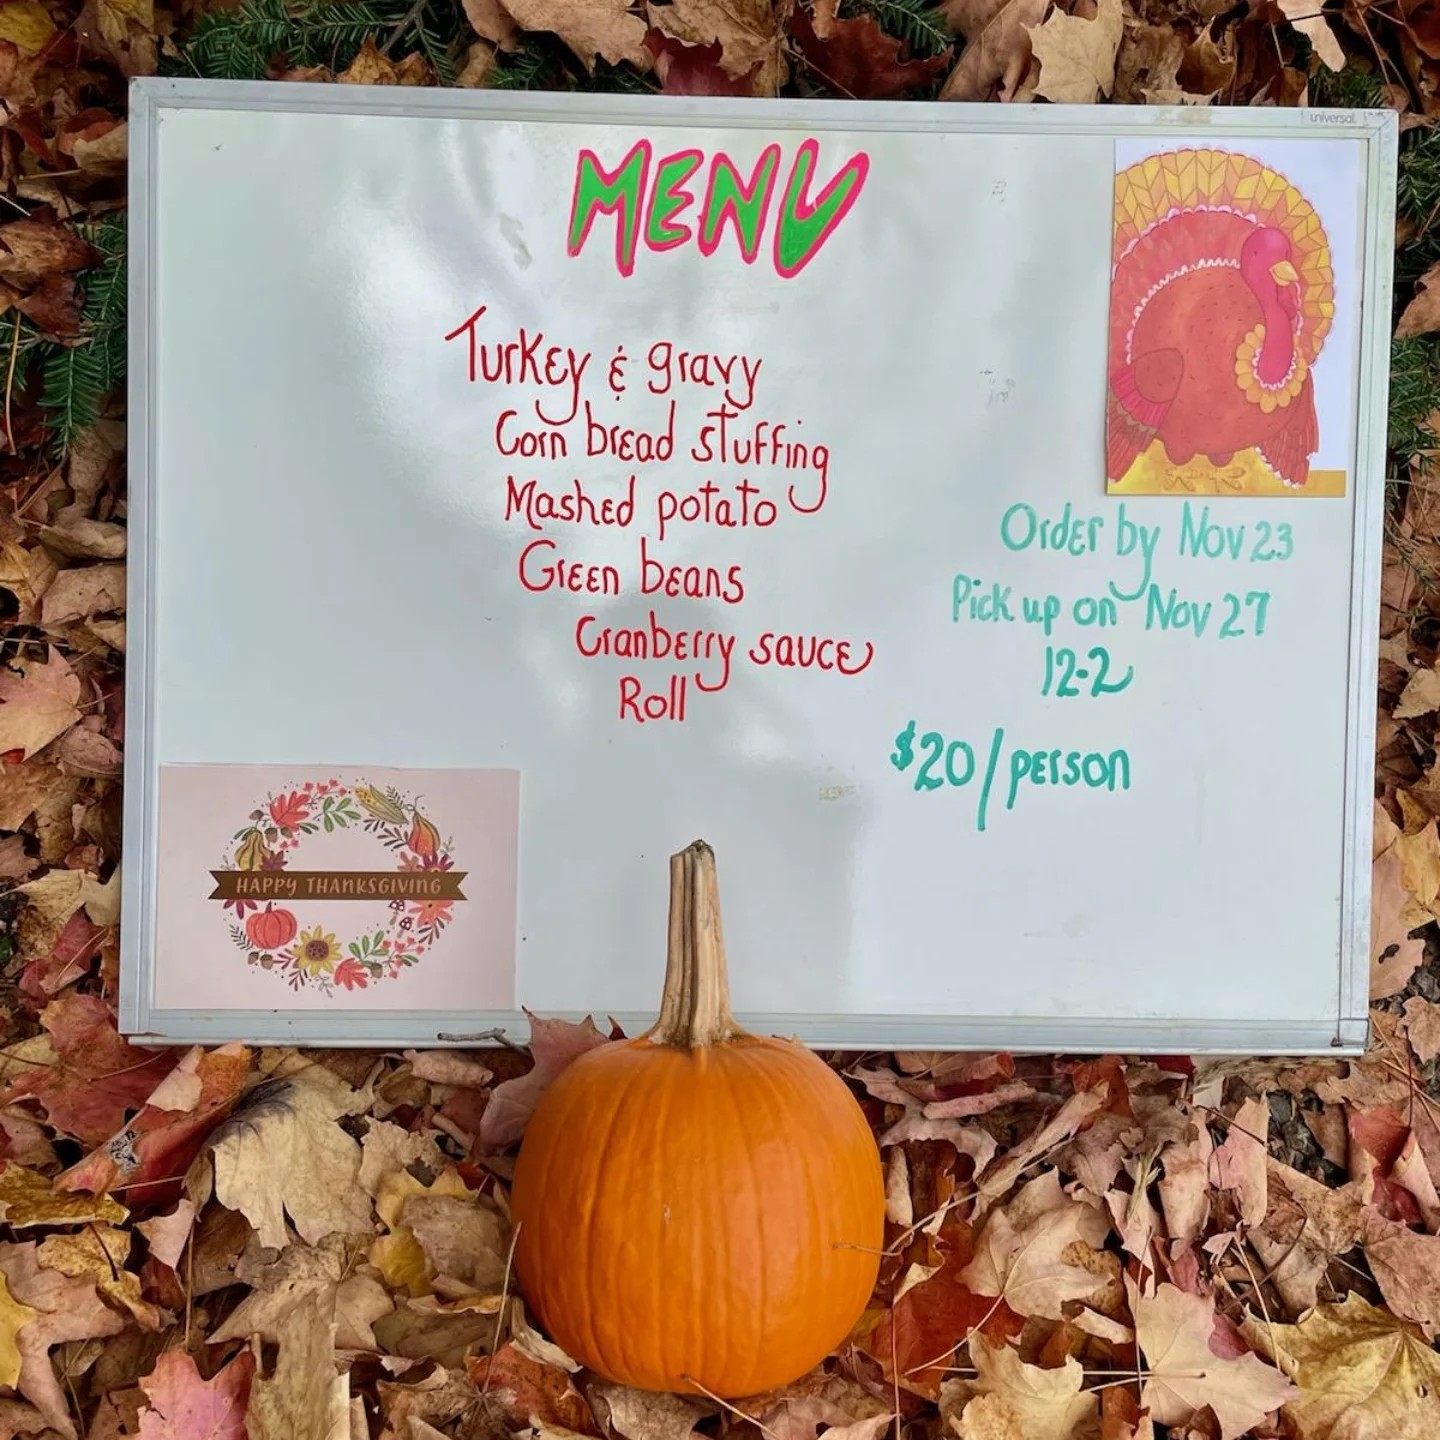 universal
MENU
Turkey & gravy
Corn bread stuffing
Mashed potato
Green beans
Cranberry sauce
Roll
Order by Nov 23
Pick up on Nov 27
12-2
$20/person
HAPPY THANKSGIVING